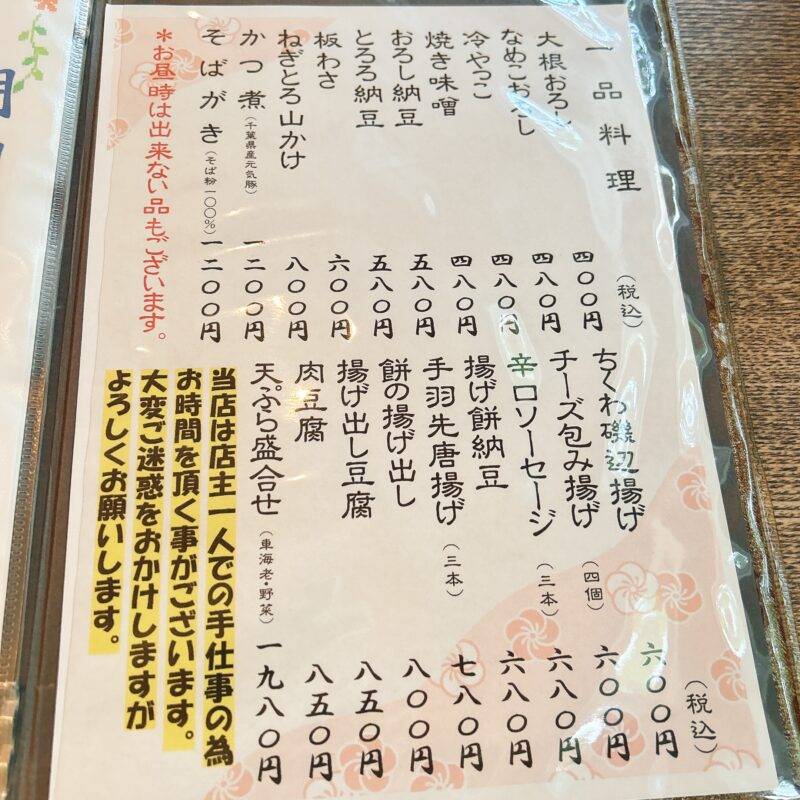 一品料理 (税込)
大根おろし 四〇〇円
なめこおろし 四八〇円
冷やっこ 四八〇円
焼き味噌 四八〇円
おろし納豆 五八〇円
とろろ納豆 五八〇円
板わさ 六〇〇円
ねぎとろ山かけ 八〇〇円
かつ煮(千葉県産元気豚) 一二〇〇円
そばがき(そば粉一〇〇%) 一二〇〇円
*お昼時は出来ない品もございます。
(税込)
ちくわ磯辺揚げ 六〇〇円
チーズ包み揚げ(四個) 六〇〇円
辛口ソーセージ(三本) 六八〇円
揚げ餅納豆 六八〇円
手羽先唐揚げ(三本) 七八〇円
餅の揚げ出し 八〇〇円
揚げ出し豆腐 八五〇円
肉豆腐 八五〇円
天ぷら盛合せ(車海老・野菜) 一九八〇円
当店は店主一人での手仕事の為
お時間を頂く事がございます。
大変ご迷惑をおかけしますが
よろしくお願いします。